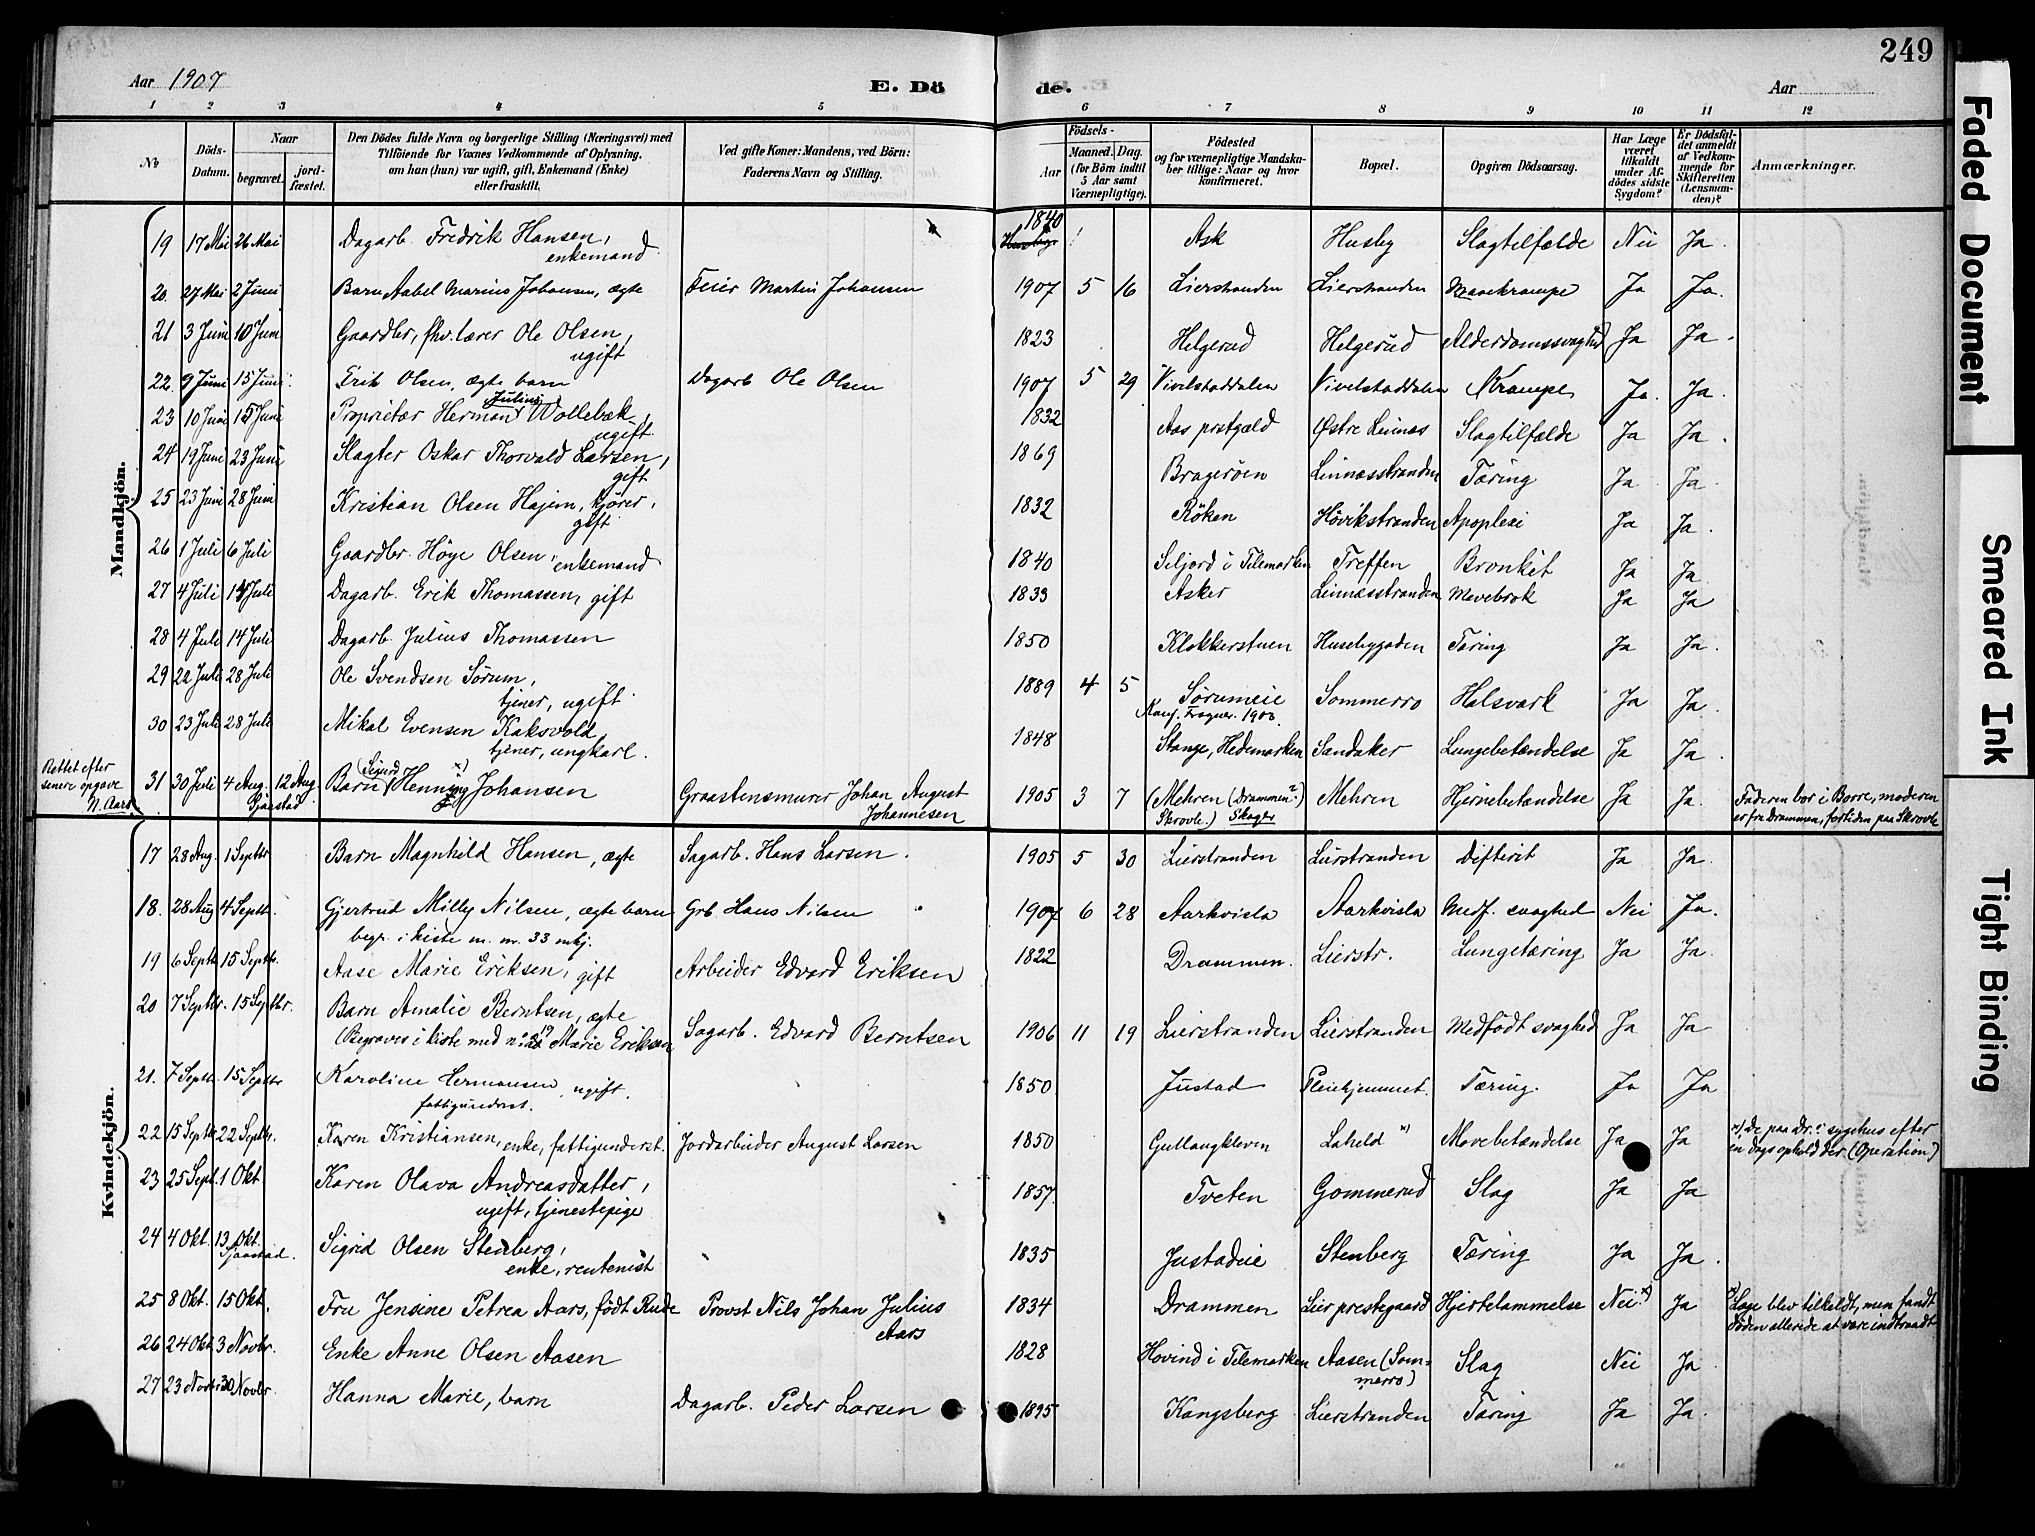 249
Aar 1907 E. Dö de. Aar
1 2 3 4 5 6 7 8 9 10 11 12
No Döds-Datum. Naar begravet. jordfæstet. Den Dödes fulde Navn og borgerlige Stilling (Næringsvei) med Tilföiende for Voxnes Vedkommende af Oplysning, om han (hun) var ugift, gift, Enkemand (Enke) eller fraskilt. Ved gifte Koner: Mandens, ved Börn: Faderens Navn og Stilling. Födsels- Aar Maaned. Dag. (for Börn indtil 5 Aar samt Værnepligtige). Födested og for værnepligtige Mandskaber tillige: Naar og hvor konfirmeret. Bopæl. Opgiven Dödsaarsag. Har Læge været tilkaldt under Afdödes sidste Sygdom? Er Dödsfaldet anmeldt af Vedkommende for Skifteretten (Lensmanden)? Anmærkninger.
Mandkjön.
19 17 Mai 26 Mai Dagarb. Fredrik Hansen, enkemand 1840 Ask Husby Slagtilfælde Nei Ja.
20. 27 Mai 2 Juni Barn Aabel Marius Johansen, ægte Feier Martin Johansen 1907 5 16 Lierstranden Lierstranden Mavekrampe Ja Ja.
21 3 Juni 10 Juni Gaardbr, fhv. lærer Ole Olsen, ugift 1823 Helgerud Helgerud Alderdomssvaghed Ja Ja.
22. 9 Juni 15 Juni Erik Olsen, ægte barn Dagarb Ole Olsen 1907 5 29 Vivelstaddalen Vivelstaddalen Krampe Ja. Ja.
23 10 Juni 15 Juni Proprietær Herman Julius Wollebæk, ugift. 1832 Aas prstgæld Østre Linnæs Slagtilfælde Ja Ja.
24 19 Juni 23 Juni Slagter Oskar Thorvald Larsen, gift 1869 Bragerøen Linnæsstranden Tæring Ja Ja.
25 23 Juni 28 Juni Kristian Olsen Hajem, kjører, gift 1832 Røken Høvikstranden Apoplexi Ja Ja.
26 1 Juli 6 Juli Gaardbr. Høye Olsen, enkemand 1840 Seljord i Telemarken Treffen Bronkit Ja Ja
27 4 Juli 14 Juli Dagarb. Erik Thomassen, gift 1833 Asker Linnæsstranden Mavebrok Ja Ja
28 4 Juli 14 Juli Dagarb. Julius Thomassen 1850 Klokkerstuen Husebygaden Tæring Ja Ja.
29 22 Juli 28 Juli Ole Svendsen Sørum, tjener, ugift 1889 4 5 Sørumeie Konf. Frogner. 1903 Sommerro Halsvark Ja Ja.
30 23 Juli 28 Juli Mikal Evensen Kaksvold, tjener, ungkarl. 1848 Stange, Hedemarken Sandaker Lungebetændelse Ja Ja.
Rettet efter senere opgave N. Aars
31 30 Juli 4 Aug. 12 Aug. Sjaastad Barn (Sigurd x) Henning Johansen Graastensmurer Johan August Johannesen 1905 3 7 (Mehren (Drammen?) Skrovle.) Skoger Mehren Hjernebetændelse Ja Ja. Faderen bor i Borre, moderen er fra Drammen, fortiden paa Skrovle
Kvindekjön.
17 28 Aug. 1 Septbr Barn Magnhild Hansen, ægte Sagarb. Hans Larsen. 1905 5 30 Lierstranden Lierstranden Difterit Ja Ja.
18. 28 Aug 4 Septb. Gjertrud Milly Nilsen, ægte barn Grb. Hans Nilsen 1907 6 28 Aarkvisla Aarkvisla Medf. svaghed Nei Ja.
begr. i kiste m. nr. 33 mkj.
19 6 Septb 15 Septbr. Aase Marie Eriksen, gift Arbeider Edvard Eriksen 1822 Drammen. Lierstr. Lungetæring Ja Ja.
20 7 Septbr. 15 Septbr. Barn Amalie Berntsen, ægte Sagarb. Edvard Berntsen 1906 11 19 Lierstranden Lierstranden Medfødt svaghed Ja Ja
(Begraves i kiste med no 19 Marie Eriksen
21. 7 Septb. 15 Septbr Karoline Hermansen, ugift. fattigunderst. 1850 Justad Pleiehjemmet. Tæring. Ja Ja
22 15 Septbr 22 Septbr. Karen Kristiansen, enke, fattigunderst. Jordarbeider August Larsen 1850 Gullaugkleven Laheld x) Mavebetændelse Ja Ja x) De paa Dr.s sygehus efter en dags ophold der (Operation)
23 25 Sept. 1 Okt Karen Olava Andreasdatter, ugift, tjenestepige 1857. Tveten Gommerud Slag Ja Ja
24 4 Okt. 13 Okt. Sjaastad. Sigrid Olsen Stenberg, enke, rentenist 1835 Justadeie Stenberg Tæring Ja Ja.
25 8 Okt. 15 Okt. Fru Jensine Petrea Aars, født Rude Provst Nils Johan Julius Aars 1834 Drammen Lier prestegaard Hjertelammelse Nei. x) Ja x) Læge blev tilkaldt, men fandt døden allerede at være indtraadt
26 24 Okt 3 Novbr. Enke Anne Olsen Aasen 1828 Hovind i Telemarken Aasen (Sommerro) Slag Nei Ja
27 23 Novbr 30 Novbr. Hanna Marie, barn Dagarb. Peder Larsen 1895 Kongsberg Lierstranden Tæring Ja Ja.
Faded Document
Smeared Ink
Tight Binding